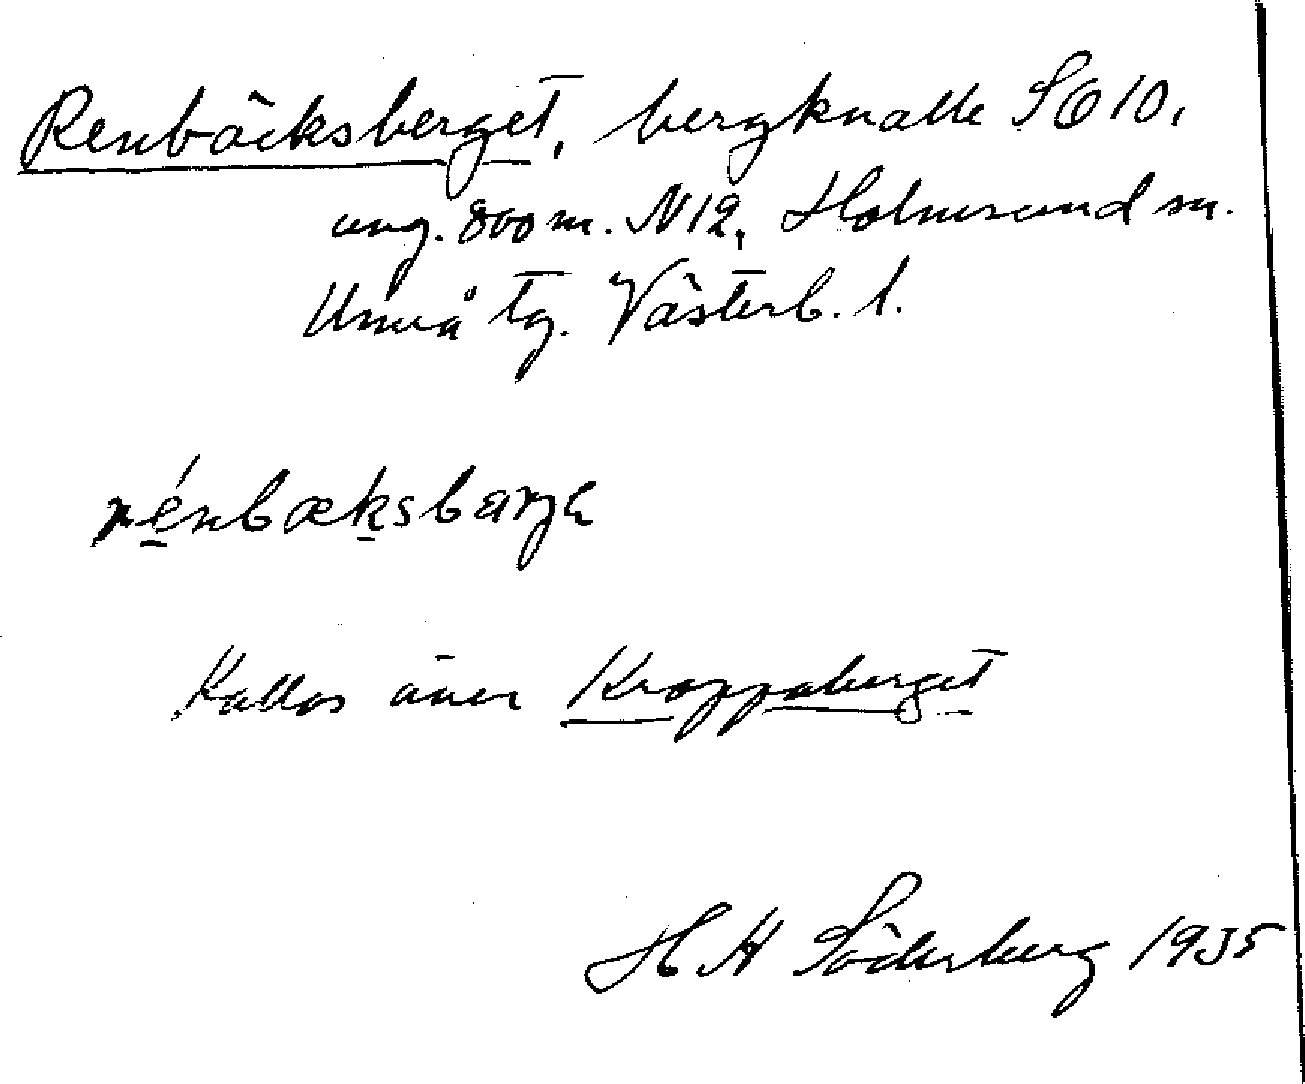 Renbäcksberget, bergknalle SO 10,
ung. 800 m. N 12, Holmsund sn.
Umeå tg. Västerb. l.
rénbæksbærje
Kallas även Kroppaberget
H H Söderberg 1935